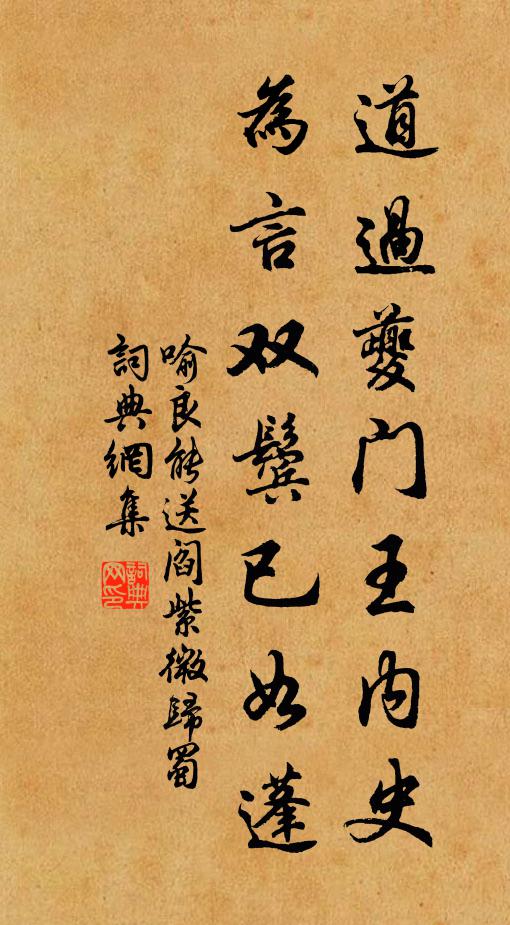 道過夔门王内史
為言双鬓已如蓬
喻良能送阎紫微歸蜀
詞典網集
詞典网印